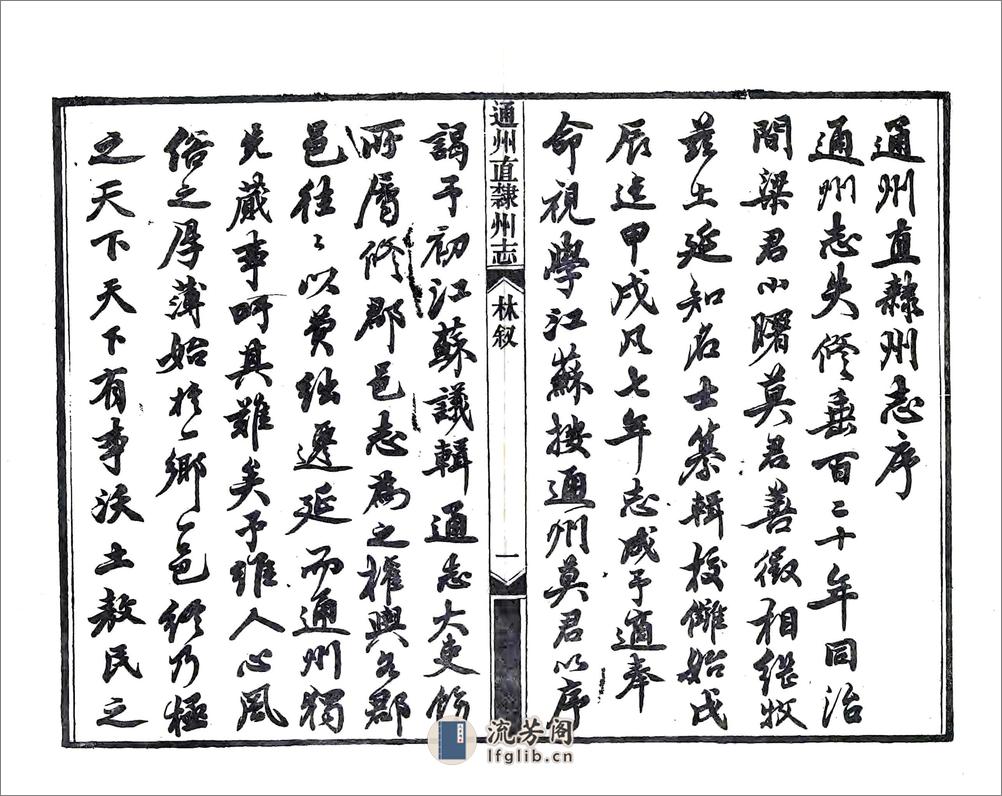 通州直隸州志序
通州志失修垂百二十年同治
間梁君小曙莫君善徵相继牧
茲土延知名士纂輯校讎始戊
辰迄甲戌凡七年志成予適奉
命視學江蘇按通州莫君以序
通州直隸州志
林叙
一
謁予初江蘇議輯通志大吏飭
所屬修郡邑志為之権輿各郡
邑往〻以費絀遷延而通州獨
先蕆事呵其難矣予維人心風
俗之厚薄始於一鄉一邑終乃極
之天下天下有事沃土敖民之
流芳阁
lfglib.cn